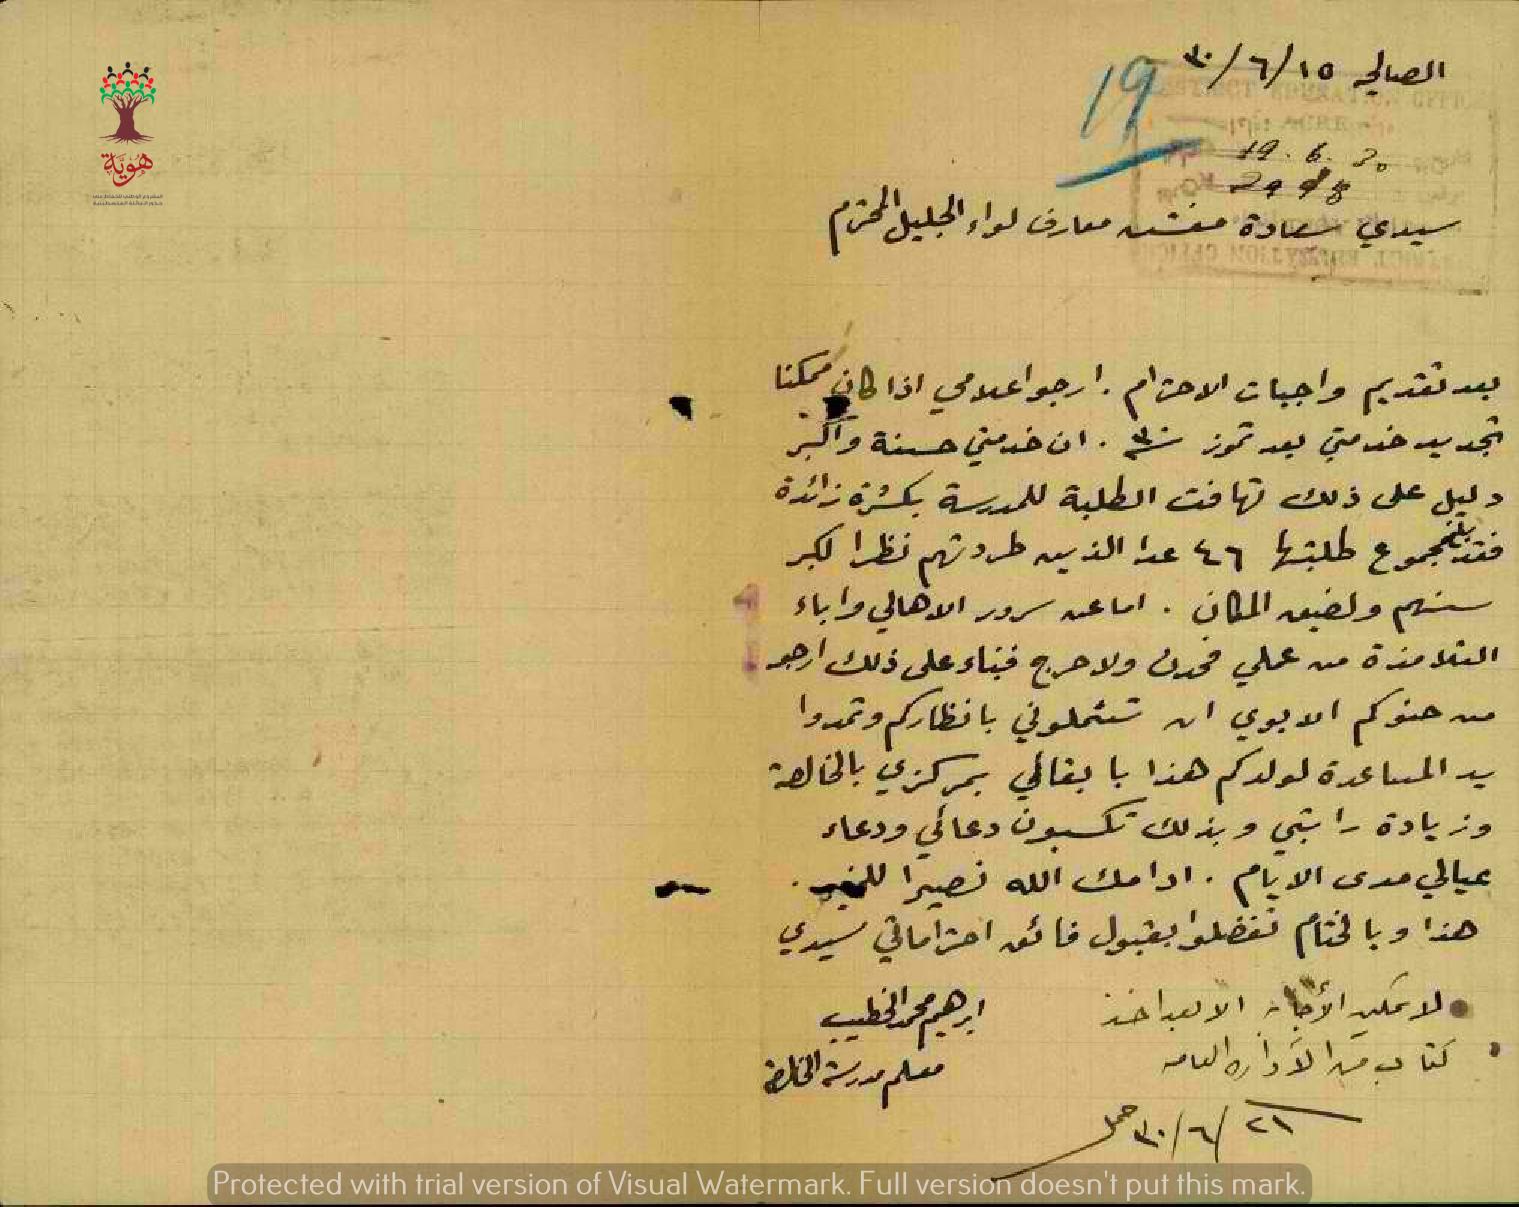 الصالحي ١٥/٦/٣٠
19
19.6.30
2998
سيدي سعادة مفتش معارف لواء الجليل المحترم
بعد تقديم واجبات الاحترام. ارجو اعلامي اذا كان ممكنا
تجديد خدمتي بعد تموز سنة ٣٠. ان خدمتي حسنة واكبر
دليل على ذلك تهافت الطلبة للمدرسة بكثرة زائدة
فقد بلغ مجموع طلبتها ٤٦ عدا الذين طردتهم نظرا لكبر
سنهم ولضيق المكان. اما عن سرور الاهالي واباء
التلامذة من عملي فحدث ولا حرج فبناء على ذلك ارجو
من حنوكم الابوي ان تشملوني بانظاركم وتمدوا
يد المساعدة لولدكم هذا بابقائي بمركزي بالخالصة
وزيادة راتبي وبذلك تكسبون دعائي ودعاء
عيالي مدى الايام. ادامك الله نصيرا للخير.
هذا وبالختام تفضلوا بقبول فائق احتراماتي سيدي
ابرهيم محمد الخطيب
معلم مدرسة الخالصة
لا يمكن الأجابة الا بعد اخذ
كتاب من الأداره العامه
٢١/٦/٣٠
هُويَّة
Protected with trial version of Visual Watermark. Full version doesn't put this mark.